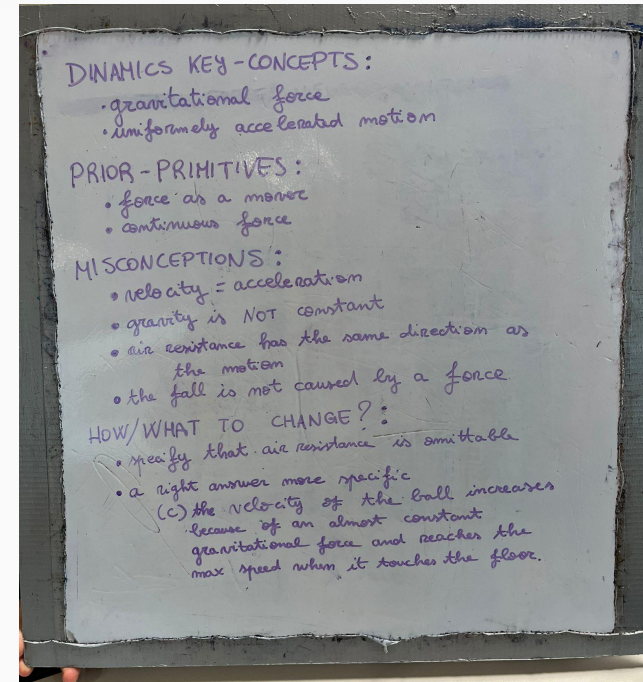 DINAMICS KEY-CONCEPTS:
• gravitational force
• uniformely accelerated motion
PRIOR-PRIMITIVES:
• force as a mover
• continuous force
MISCONCEPTIONS:
• velocity = acceleration
• gravity is NOT constant
• air resistance has the same direction as
the motion
• the fall is not caused by a force
HOW/WHAT TO CHANGE?:
• specify that air resistance is omittable
• a right answer more specific
(c) the velocity of the ball increases
because of an almost constant
gravitational force and reaches the
max speed when it touches the floor.